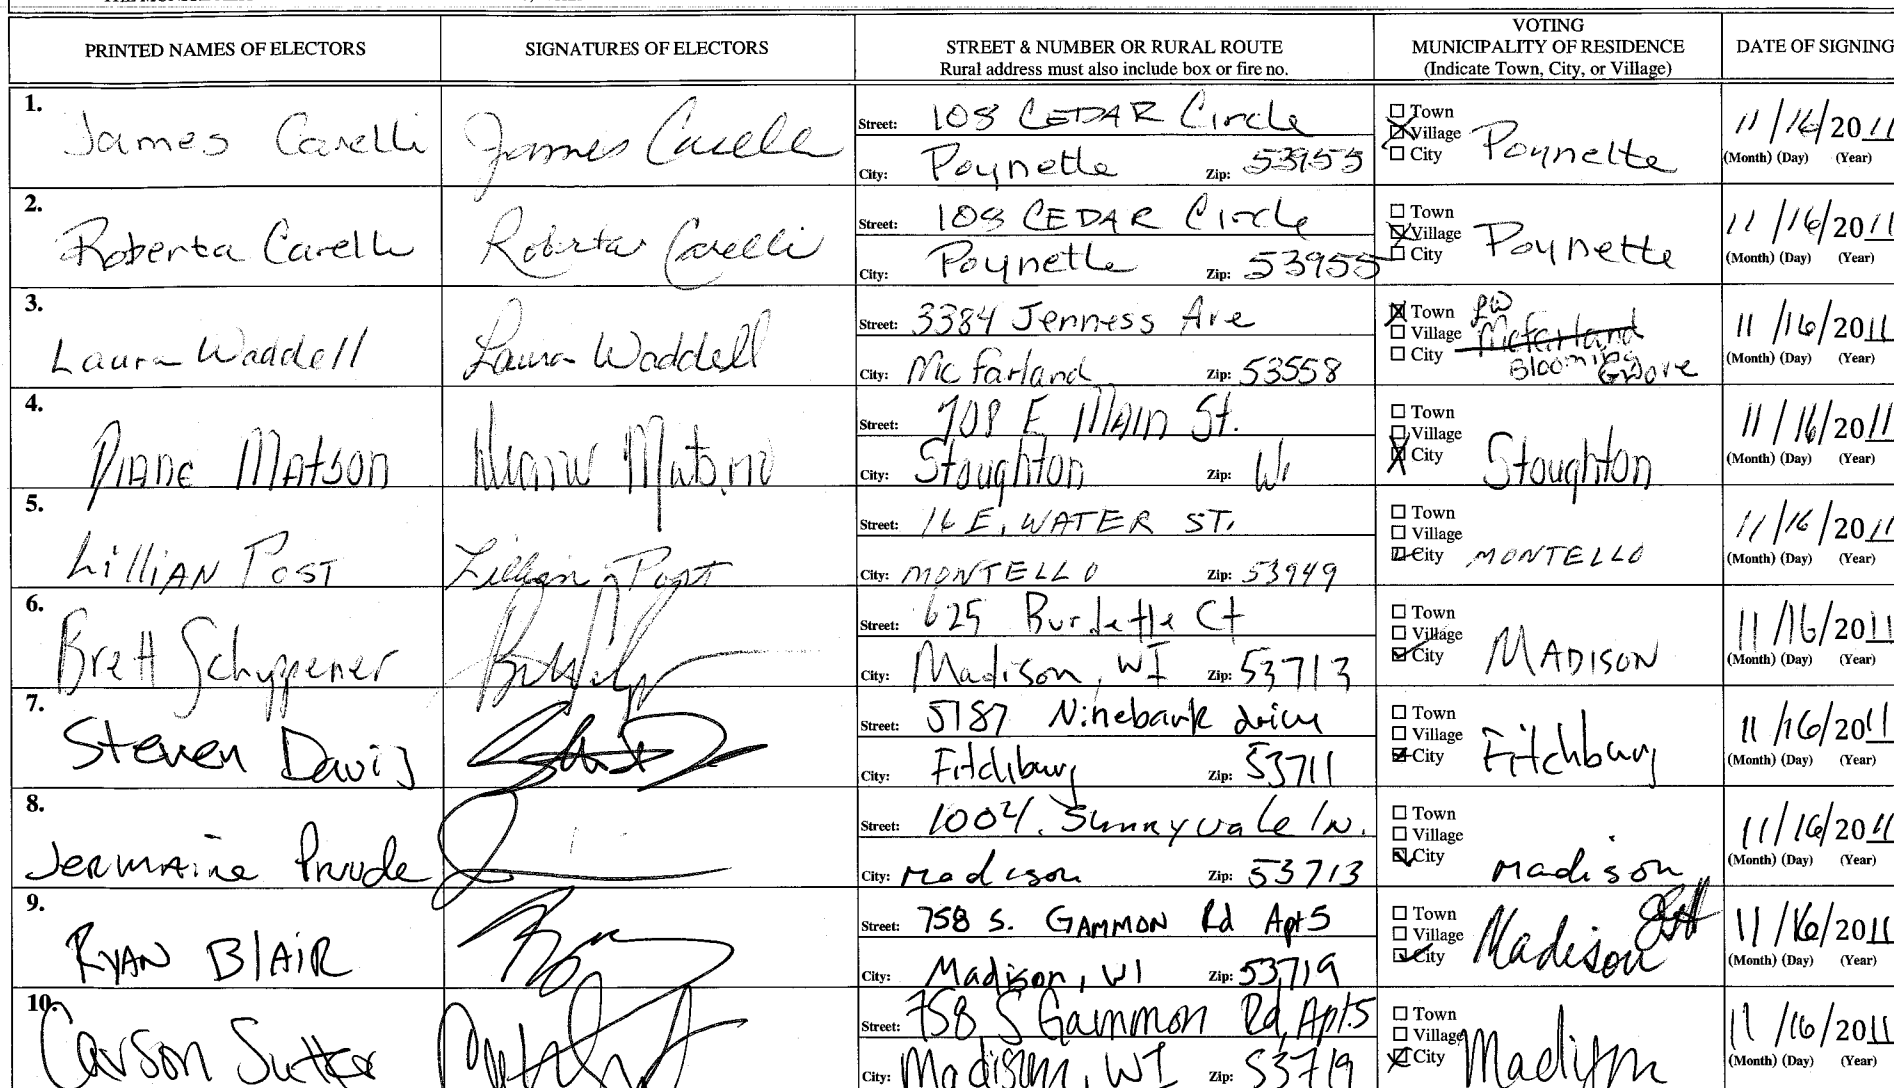 PRINTED NAMES OF ELECTORS
SIGNATURES OF ELECTORS
STREET & NUMBER OR RURAL ROUTE
Rural address must also include box or fire no.
VOTING
MUNICIPALITY OF RESIDENCE
(Indicate Town, City, or Village)
DATE OF SIGNING
1.
James Carelli
James Carelli
Street: 108 CEDAR Circle
City: Poynette Zip: 53955
Town
Village
City
Poynette
11/16/2011
(Month) (Day) (Year)
2.
Roberta Carelli
Roberta Carelli
Street: 108 CEDAR Circle
City: Poynette Zip: 53955
Town
Village
City
Poynette
11/16/2011
(Month) (Day) (Year)
3.
Laura Waddell
Laura Waddell
Street: 3384 Jenness Ave
City: McFarland Zip: 53558
Town
Village
City
LW
McFarland
Blooming
Grove
11/16/2011
(Month) (Day) (Year)
4.
Diane Matson
Diane Matson
Street: 708 E Main St.
City: Stoughton Zip: Wi
Town
Village
City
Stoughton
11/16/2011
(Month) (Day) (Year)
5.
Lillian Post
Lillian Post
Street: 16 E. WATER ST.
City: MONTELLO Zip: 53949
Town
Village
City
MONTELLO
11/16/2011
(Month) (Day) (Year)
6.
Brett Schuppener
Street: 625 Burdette Ct
City: Madison, WI Zip: 53713
Town
Village
City
MADISON
11/16/2011
(Month) (Day) (Year)
7.
Steven Davis
Street: 5787 Ninebark drive
City: Fitchburg Zip: 53711
Town
Village
City
Fitchburg
11/16/2011
(Month) (Day) (Year)
8.
Jermaine Prude
Street: 1004 Sunnyvale ln.
City: Madison Zip: 53713
Town
Village
City
madison
11/16/2011
(Month) (Day) (Year)
9.
RYAN BlAIR
Street: 758 S. GAMMON Rd Apt 5
City: Madison, WI Zip: 53719
Town
Village
City
Madison
11/16/2011
(Month) (Day) (Year)
10.
Carson Sutter
Street: 758 S Gammon Rd, Apt. 5
City: Madison, WI Zip: 53719
Town
Village
City
Madison
11/16/2011
(Month) (Day) (Year)